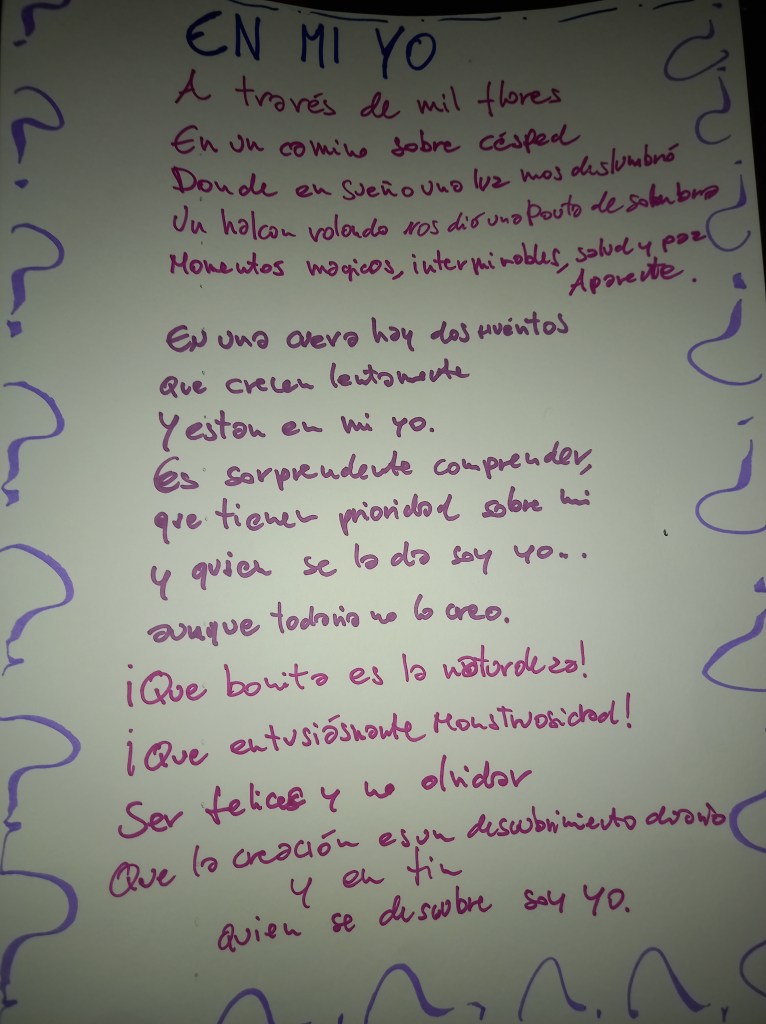 EN MI YO
A través de mil flores
En un camino sobre césped
Donde en sueño una luz nos deslumbró
Un halcon volando nos dió una pauta de
Momentos magicos, interminables, salud y paz
Aparente.
En una cueva hay dos
que crecen lentamente
Y estan en mi yo.
Es sorprendente comprender,
que tienen prioridad sobre mi
y quien se la da soy yo...
aunque todavia no lo creo.
¡Que bonita es la naturaleza!
¡Que entusiásmante Monstruosidad!
Ser felices y no olvidar
Que la creación es un descubrimiento diario
y en fin
quien se descubre soy YO.